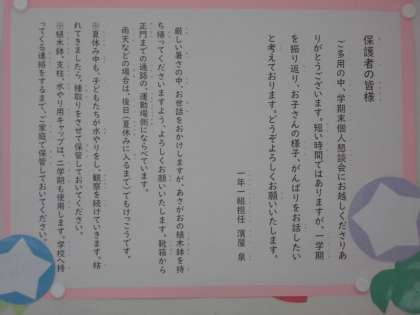 保護者の皆様
ご多用の中、学期末個人懇談会にお越しくださりあ
りがとうございます。短い時間ではありますが、一学期
を振り返り、お子さんの様子、がんばりをお話したい
と考えております。どうぞよろしくお願いいたします。
一年一組担任 濱屋 泉
厳しい暑さの中、お世話をおかけしますが、あさがおの植木鉢を持
ち帰ってくださいますよう、よろしくお願いいたします。靴箱から
正門までの通路の、運動場側にならべています。
雨天などの場合は、後日(夏休みに入るまで)でもけっこうです。
※夏休み中も、子どもたちが水やりをし、観察を続けていきます。枯
れてきましたら、種取りをさせて保管しておいてください。
※植木鉢、支柱、水やり用キャップは、二学期も使用します。学校へ持
ってくる連絡をするまで、ご家庭で保管しておいてください。